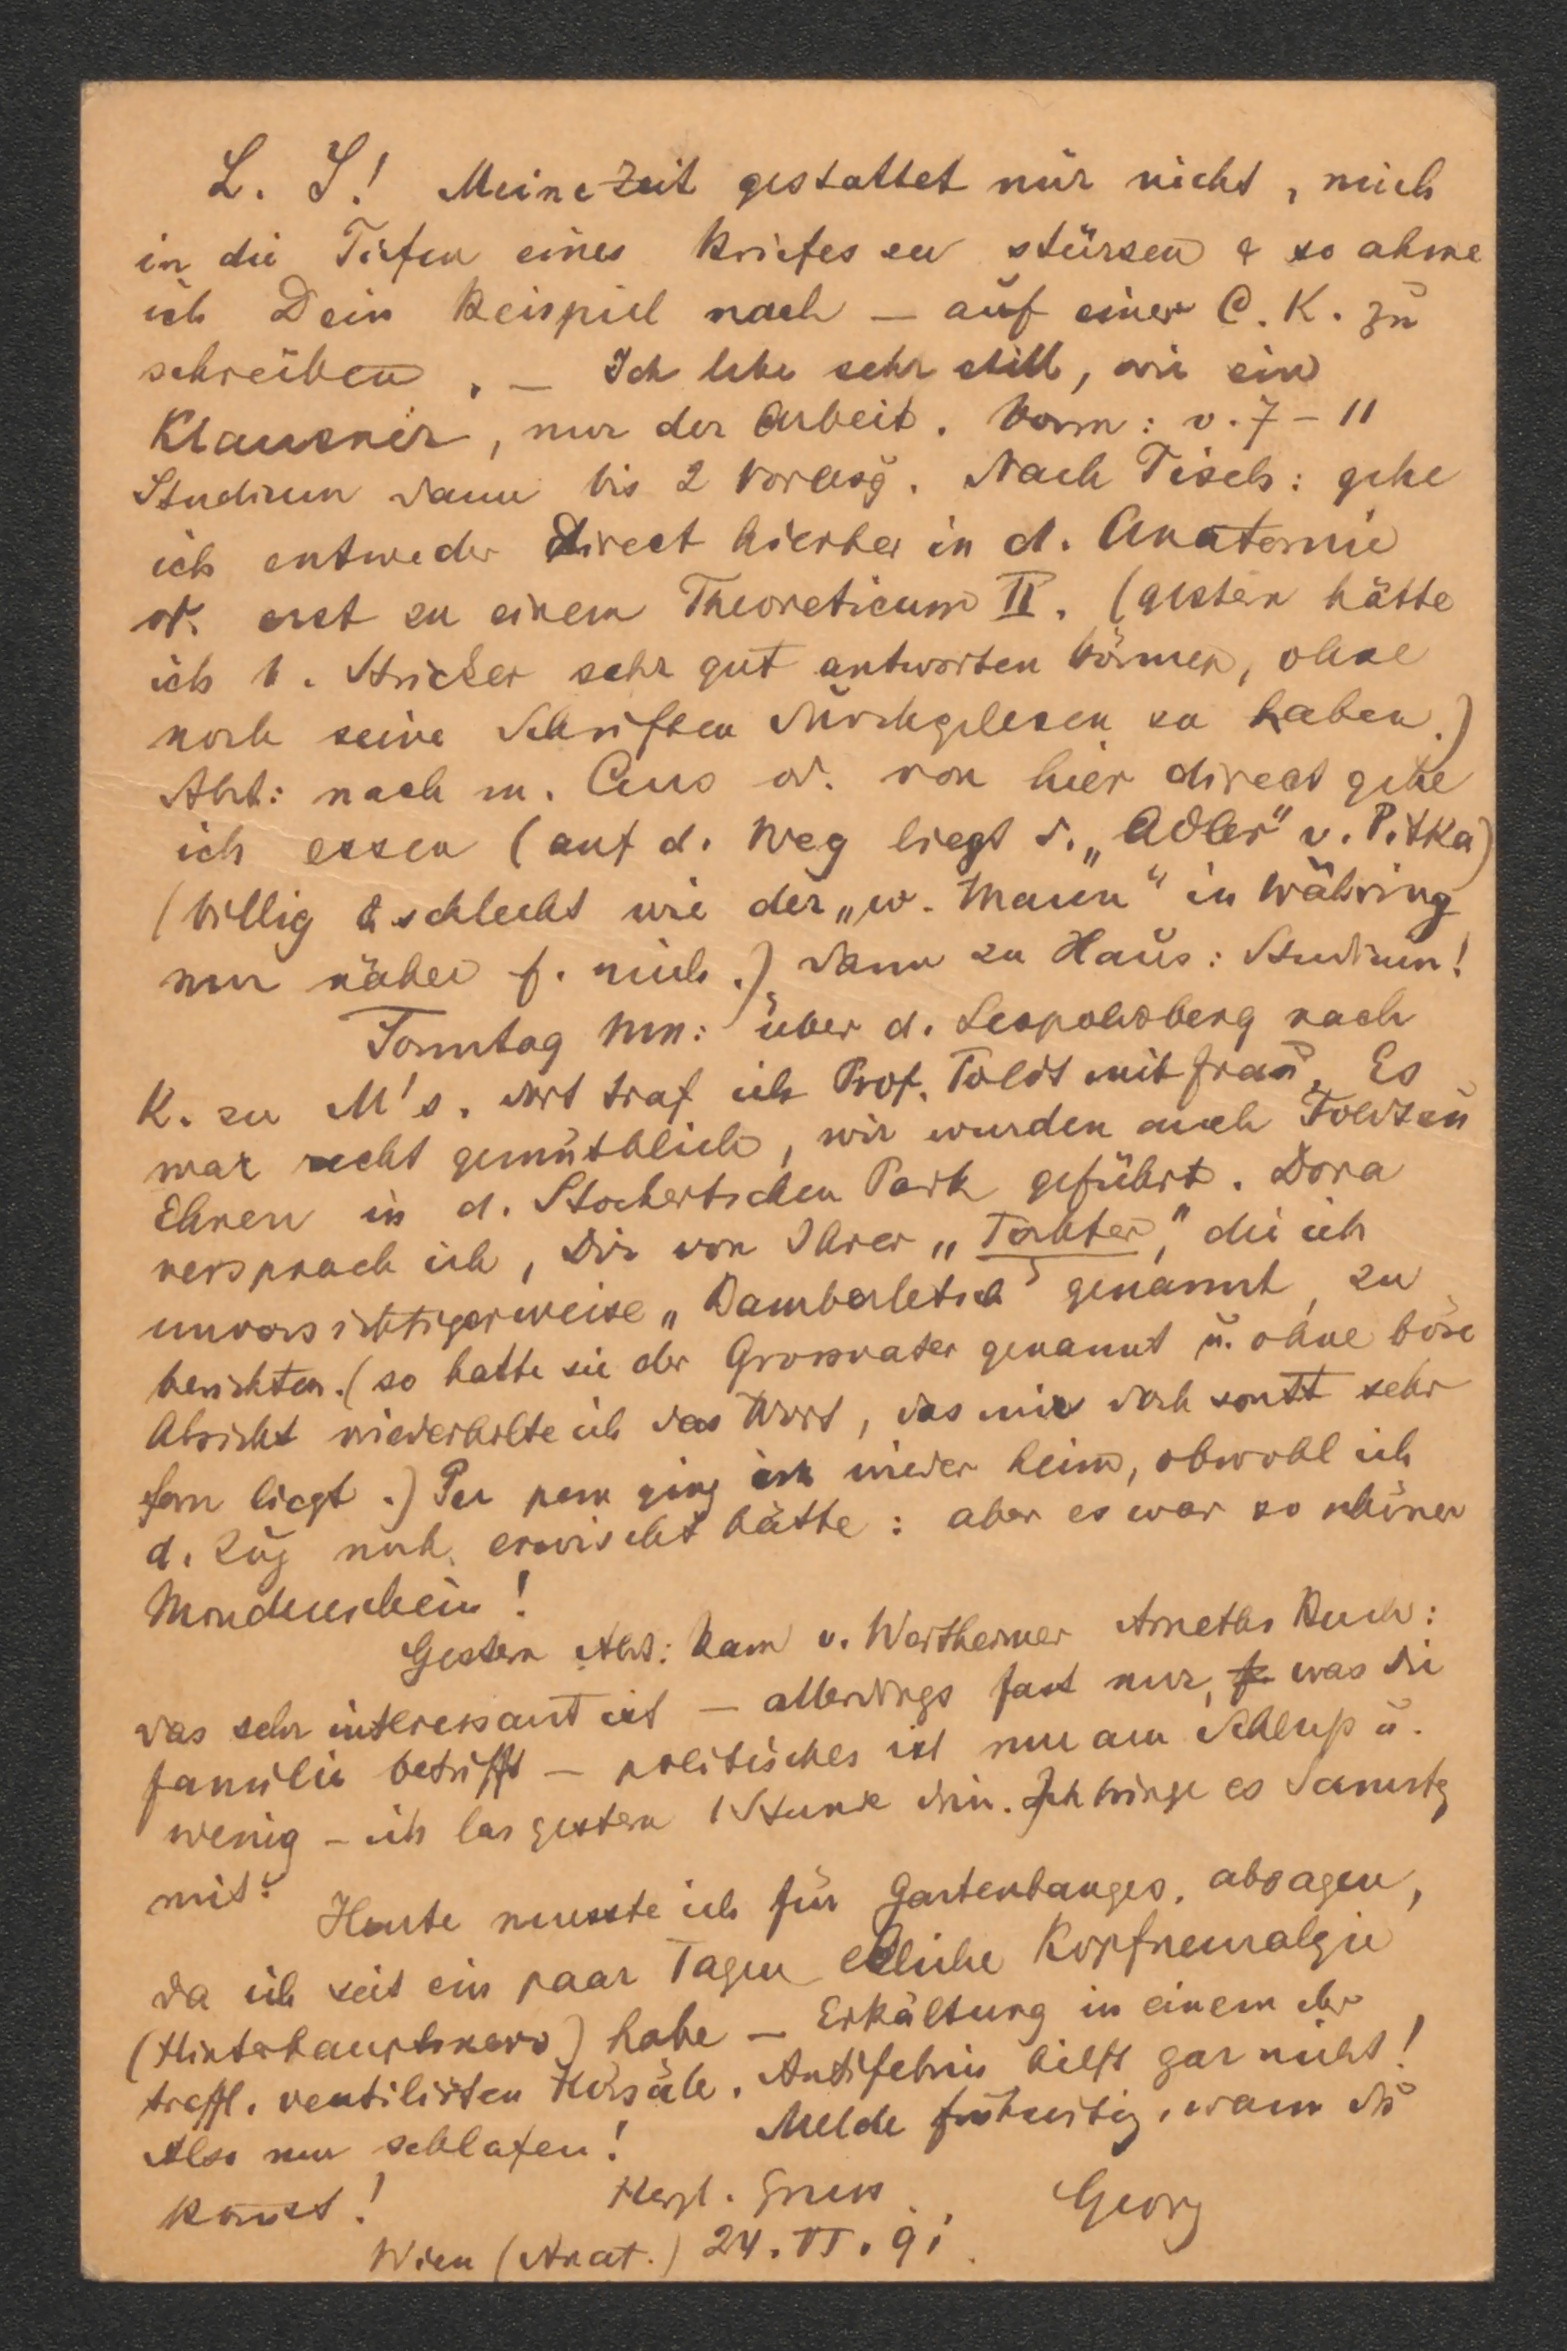 L. S! Meine Zeit gestattet mir nicht, mich
in die Tiefen eines Briefes zu stürzen & so ahme
ich Dein Beispiel nach – auf einer C. K. zu
schreiben. – Ich lebe sehr still, wie ein
Klausner, nur der Arbeit. Vorm: v. 7 – 11
Studium dann bis 2 Vorlesg. Nach Tisch: gehe
ich entweder direct hierher in d. Anatomie
od. erst zu einem Theoreticum II. (gestern hätte
ich b. Stricker sehr gut antworten können, ohne
noch seine Schriften durchgelesen zu haben.)
Abd: nach m. Curs od. von hier direct gehe
ich essen (auf d. Weg liegt d. „Adler" v. Pitka)
(billig & schlecht wie der „w. Mann" in Währing
nur näher f. mich.) dann zu Haus: Studium!
Sonntag Nm: über d. Leopoldsberg nach
K. zu M's. dort traf ich Prof. Toldt mit Frau. Es
war recht gemüthlich, wir wurden auch Toldt zu
Ehren in d. Stockertschen Park geführt. Dora
versprach ich, Dir von Ihrer „Tochter," die ich
unvorsichtigerweise „Bamberletsch" genannt, zu
berichten. (so hatte sie der Grossvater genannt u. ohne böse
Absicht wiederholte ich das Wort, das mir doch sonst sehr
fern liegt.) Per ging ich wieder heim, obwohl ich
d. Zug noch erwischt hätte: aber es war so schöner
Mondenschein!
Gestern Abd: kam v. Wertheimer Arneths Buch:
das sehr interessant ist – allerdings fast nur, was die
Familie betrifft – politisches ist nur am Schluß u.
wenig – ich las gestern 1 Stunde drin. Ich bringe es Samstg
mit.
Heute musste ich für Gartenbauges. absagen,
da ich seit ein paar Tagen etliche Kopfneuralgie
(Hinterhauptsnerv) habe – Erkältung in einem der
treffl. ventilirten Hörsäle. Antifebrin hilft gar nicht!
Also nur schlafen! Melde frühzeitig, wann Du
komst! Herzl. Gruss Georg
Wien (Anat.) 24. VI. 91.